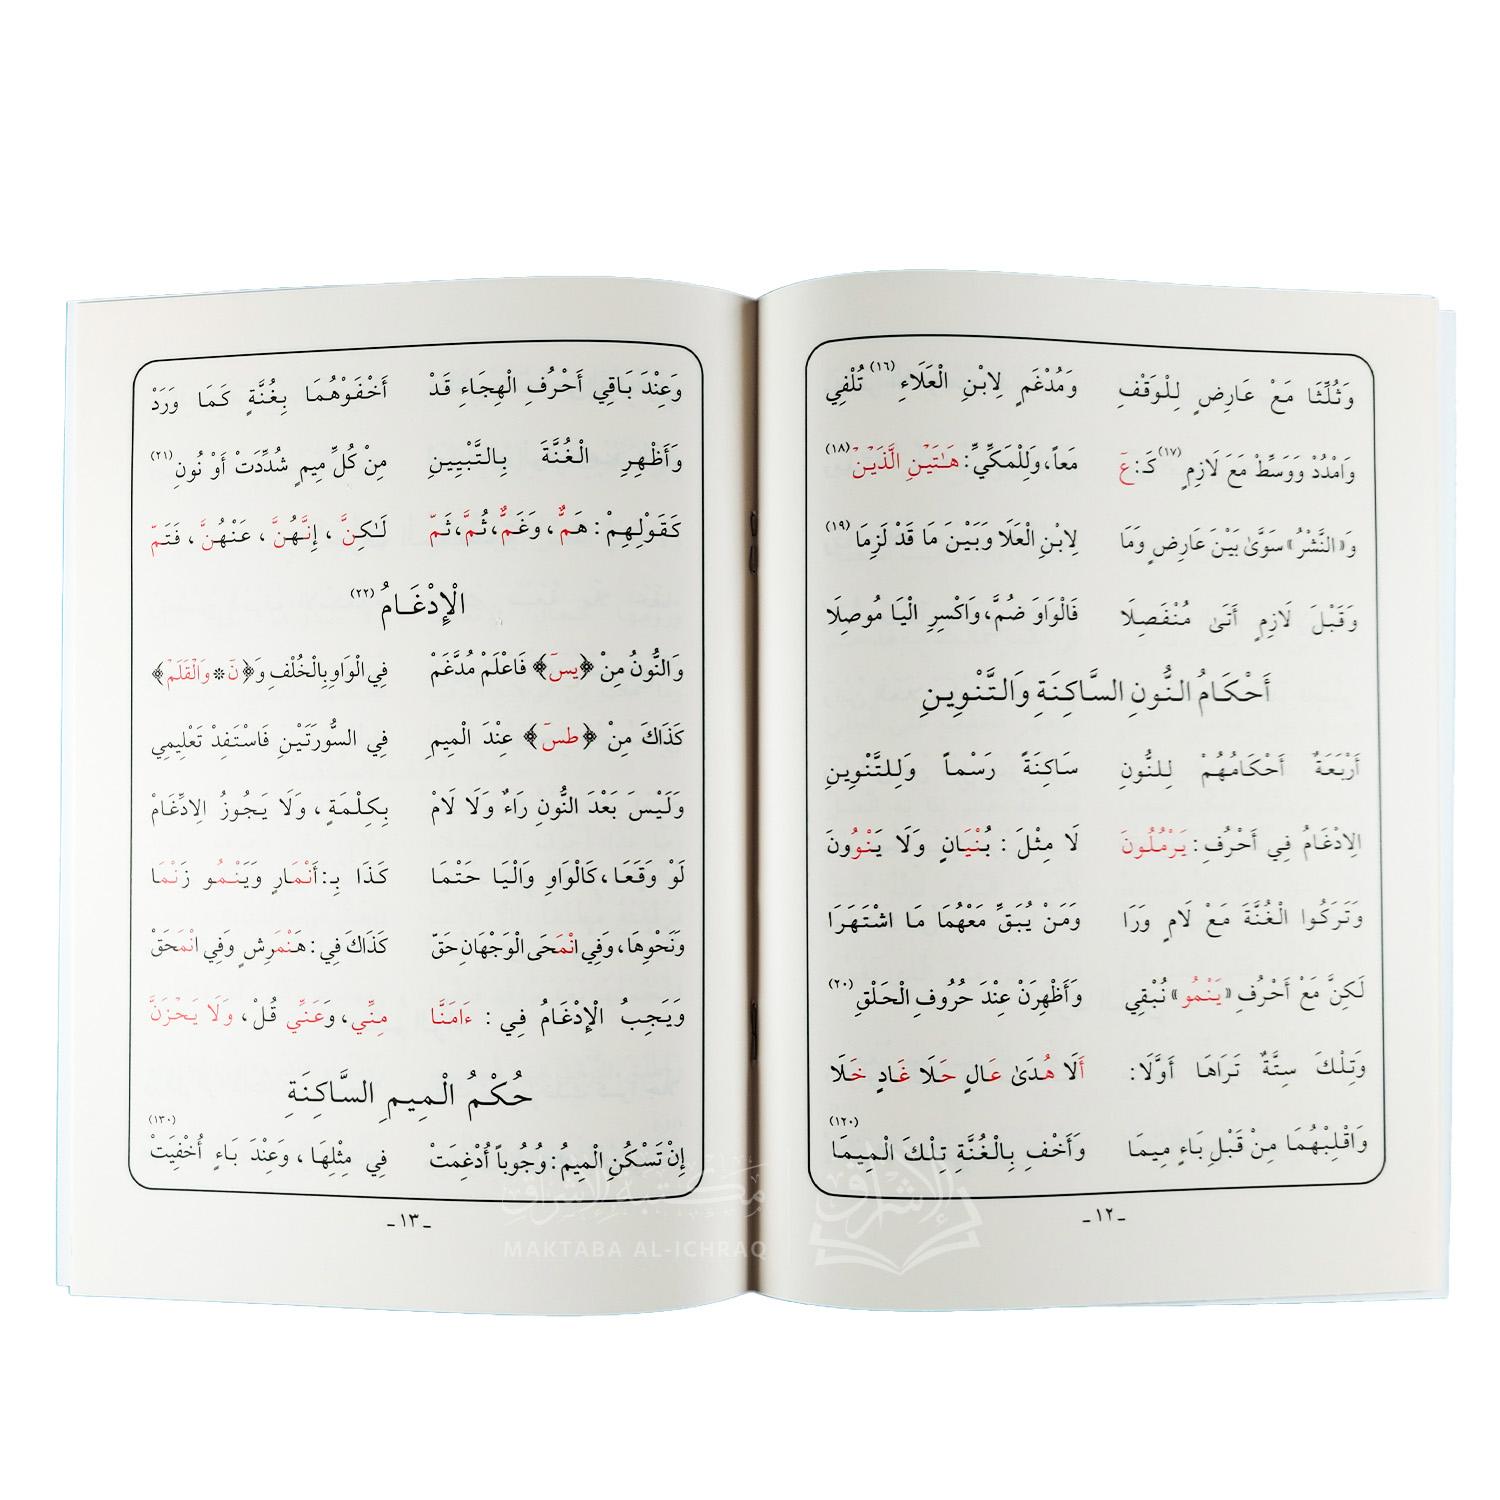 وَثُلِّثَا مَعْ عَارِضٍ لِلْوَقْفِ وَمُدْغَمٍ لِابْنِ الْعَلَاءِ (١٦) تُلْفِي
وَامْدُدْ وَوَسِّطْ مَعَ لَازِمٍ (١٧) كَـ: عَٓ مَعاً، وَلِلْمَكِّيِّ: هَـٰتَيْنِ الَّذَيْنِّ (١٨)
وَ«النَّشْرُ» سَوَّىٰ بَيْنَ عَارِضٍ وَمَا لِابْنِ الْعَلَا وَبَيْنَ مَا قَدْ لَزِمَا (١٩)
وَقَبْلَ لَازِمٍ أَتَىٰ مُنْفَصِلَا فَالْوَاوَ ضُمَّ، وَاكْسِرِ الْيَا مُوصِلَا
أَحْكَامُ النُّونِ السَّاكِنَةِ وَالتَّنْوِينِ
أَرْبَعَةٌ أَحْكَامُهُمْ لِلنُّونِ سَاكِنَةً رَسْماً وَلِلتَّنْوِينِ
الِادْغَامُ فِي أَحْرُفِ: يَرْمُلُونَ لَا مِثْلَ: بُنْيَانٍ وَلَا يَنْوُونَ
وَتَرَكُوا الْغُنَّةَ مَعْ لَامٍ وَرَا وَمَنْ يُبَقِّ مَعْهُمَا مَا اشْتَهَرَا
لَكِنَّ مَعْ أَحْرُفِ «يَنْمُو» نُبْقِي وَأَظْهِرَنْ عِنْدَ حُرُوفِ الْحَلْقِ (٢٠)
وَتِلْكَ سِتَّةٌ تَرَاهَا أَوَّلَا: أَلَا هُدَىٰ عَالٍ حَلَا غَادٍ خَلَا
وَاقْلِبْهُمَا مِنْ قَبْلِ بَاءٍ مِيمَا وَأَخْفِ بِالْغُنَّةِ تِلْكَ الْمِيمَا (١٢٠)
ـ ١٢ ـ
وَعِنْدَ بَاقِي أَحْرُفِ الْهِجَاءِ قَدْ أَخْفَوْهُمَا بِغُنَّةٍ كَمَا وَرَدْ
وَأَظْهِرِ الْغُنَّةَ بِالتَّبْيِينِ مِنْ كُلِّ مِيمٍ شُدِّدَتْ أَوْ نُونِ (٢١)
كَقَوْلِهِمْ: هَمٌّ، وَغَمٌّ، ثُمَّ، ثَمّ لَـٰكِنَّ، إِنَّهُنَّ، عَنْهُنَّ، فَتَمّ
الْإِدْغَامُ (٢٢)
وَالنُّونُ مِنْ ﴿يسٓ﴾ فَاعْلَمْ مُدَّغَمْ فِي الْوَاوِ بِالْخُلْفِ وَ﴿نٓ * وَالْقَلَمْ﴾
كَذَاكَ مِنْ ﴿طسٓ﴾ عِنْدَ الْمِيمِ فِي السُّورَتَيْنِ فَاسْتَفِدْ تَعْلِيمِي
وَلَيْسَ بَعْدَ النُّونِ رَاءٌ وَلَا لَامْ بِكِلْمَةٍ، وَلَا يَجُوزُ الِادِّغَامْ
لَوْ وَقَعَا، كَالْوَاوِ وَالْيَا حَتْمَا كَذَا بِـ: أَنْمَارٍ وَيَنْمُو زَنْمَا
وَنَحْوِهَا، وَفِي انْمَحَى الْوَجْهَانِ حَقّ كَذَاكَ فِي: هَنْمَرِشٍ وَفِي انْمَحَقْ
وَيَجِبُ الْإِدْغَامُ فِي: ءَامَنَّا مِنِّي، وَعَنِّي قُلْ، وَلَا يَحْزَنَّ
حُكْمُ الْمِيمِ السَّاكِنَةِ
إِنْ تَسْكُنِ الْمِيمُ: وُجُوباً أُدْغِمَتْ فِي مِثْلِهَا، وَعِنْدَ بَاءٍ أُخْفِيَتْ (١٣٠)
ـ ١٣ ـ
مكتبة الإشراق
MAKTABA AL-ICHRAQ
الإشراق